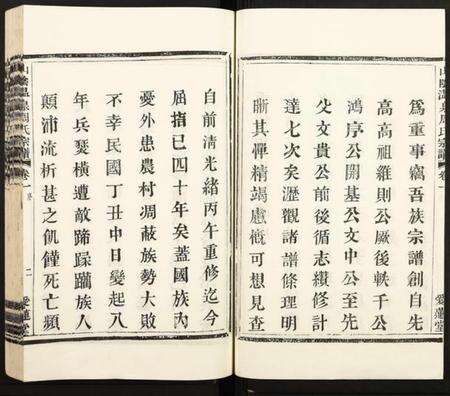 山陰溫泉周氏宗譜 卷一
爲重事竊吾族宗譜創自先
高高祖維則公厥後軼千公
鴻序公開基公文中公至先
父文貴公前後循志纘修計
達七次矣瀝觀諸譜條理明
晰其殫精竭慮慨可想見查
愛蓮堂
自前清光緒丙午重修迄今
屈指已四十年矣蓋國族內
憂外患農村凋蔽族勢大敗
不幸民國丁丑中日變起八
年兵燹橫遭敵蹄蹂躪族人
顛沛流析甚之飢饉死亡頻
氏宗譜 卷一
二
愛蓮堂